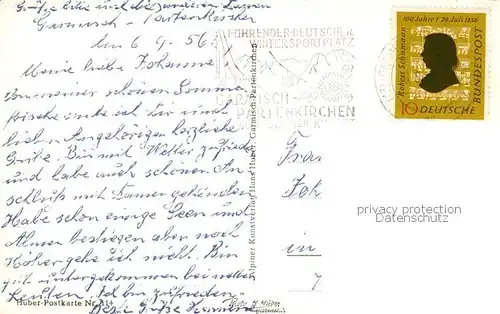 Grüße
Garmisch - Partenkirchen
den 6. 9. 56.
Meine liebe Johanna!
Von meiner schönen Sommer
frische sende ich Dir und
lieben Angehörigen herzliche
Grüße. Bin mit Wetter zufrieden
und habe auch schönen An
schluß mit Damen gefunden
Habe schon einige Seen und
Almen bestiegen aber noch
höher gehe ich nicht. Bin
gut untergekommen bei netten
Leuten. Ich bin zufrieden.
Herzl. Grüße
Huber-Postkarte Nr.
Alpiner Kunstverlag Hans Huber, Garmisch-Partenkirchen
FÜHRENDER DEUTSCHER
WINTERSPORTPLATZ
GARMISCH-
PARTENKIRCHEN
100. Jahre † 29. Juli 1856
Robert Schumann
10 DEUTSCHE
BUNDESPOST
Frau
Joh
in
privacy protection
Datenschutz